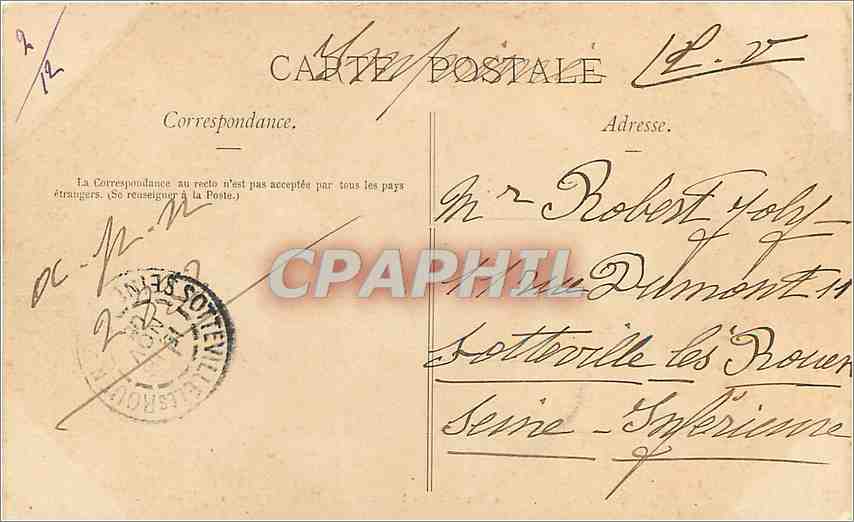 2/12
CARTE POSTALE
Correspondance.
Adresse.
La Correspondance au recto n'est pas acceptée par tous les pays
étrangers. (Se renseigner à la Poste.)
Mr Robert Joly
11 rue Dumont 11
Sotteville les Rouen
Seine - Inférieure
SOTTEVILLE LES ROUEN
SEINE
CPAPHIL